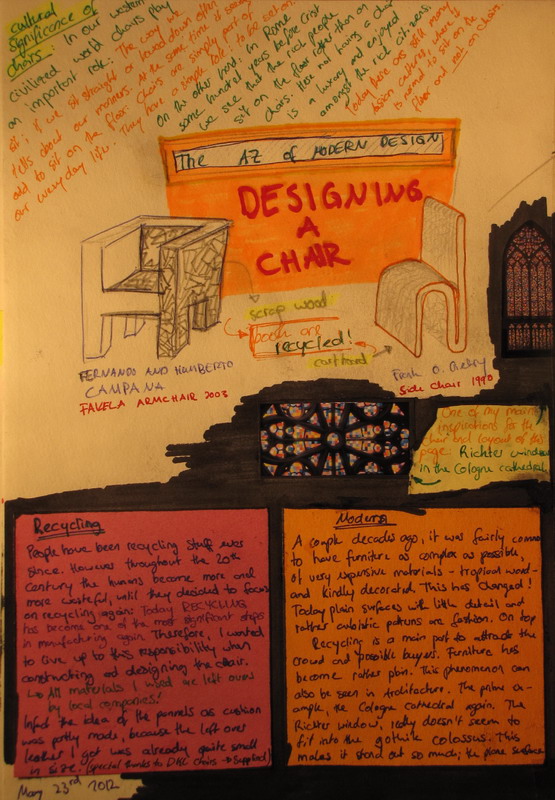 cultural
significance of
chairs: In our western
civilized world chairs play
an important role: The way we
sit; if we sit straight or bowed down often
tells about our manners. At the same time it seems
odd to sit on the floor. Chairs are simply part of
our everyday life. They have a simple role: to be sat on.
On the other hand, in Rome
some hundred years before Christ
we see that the rich people
sit on the floor other than on
chairs. Here not having a chair
is a luxury and enjoyed
amongst the rich citizens.
Today there are still many
asian cultures, where it
is wanted to sit on the
floor and not on chairs.
The AZ of MODERN DESIGN
DESIGNING
A
CHAIR
scrap wood
both are
recycled!
cartboard
FERNANDO AND HUMBERTO
CAMPANA
FAVELA ARMCHAIR 2003
Frank O. Gehry
Side Chair 1990
One of my main
inspirations for the
chair and layout of this
page: Richter window
in the Cologne cathedral
Recycling
People have been recycling stuff ever
since. However throughout the 20th
century the humans became more and
more wasteful, until they decided to focus
on recycling again: Today RECYCLING
has become one of the most significant steps
in manufacturing again. Therefore, I wanted
to give up to this responsibility when
constructing and designing the chair.
↳ All materials I used are left overs
by local companies!
Infact the idea of the pannels as cushion
was partly made, because the left over
leather I got was already quite small
in size. (special thanks to chairs → supplied)
May 23rd 2012
Modern
A couple decades ago, it was fairly common
to have furniture as complex as possible,
of very expensive materials - tropical wood -
and kindly decorated. This has changed!
Today plain surfaces with little detail and
rather cubistic patterns are fashion. On top
Recycling is a main part to attract the
crowd and possible buyers. Furniture has
become rather plain. This phenomenon can
also be seen in architecture. The prime ex-
ample, the Cologne cathedral again. The
Richter window, really doesn't seem to
fit into the gothik colossus. This
makes it stand out so much; the plane surface